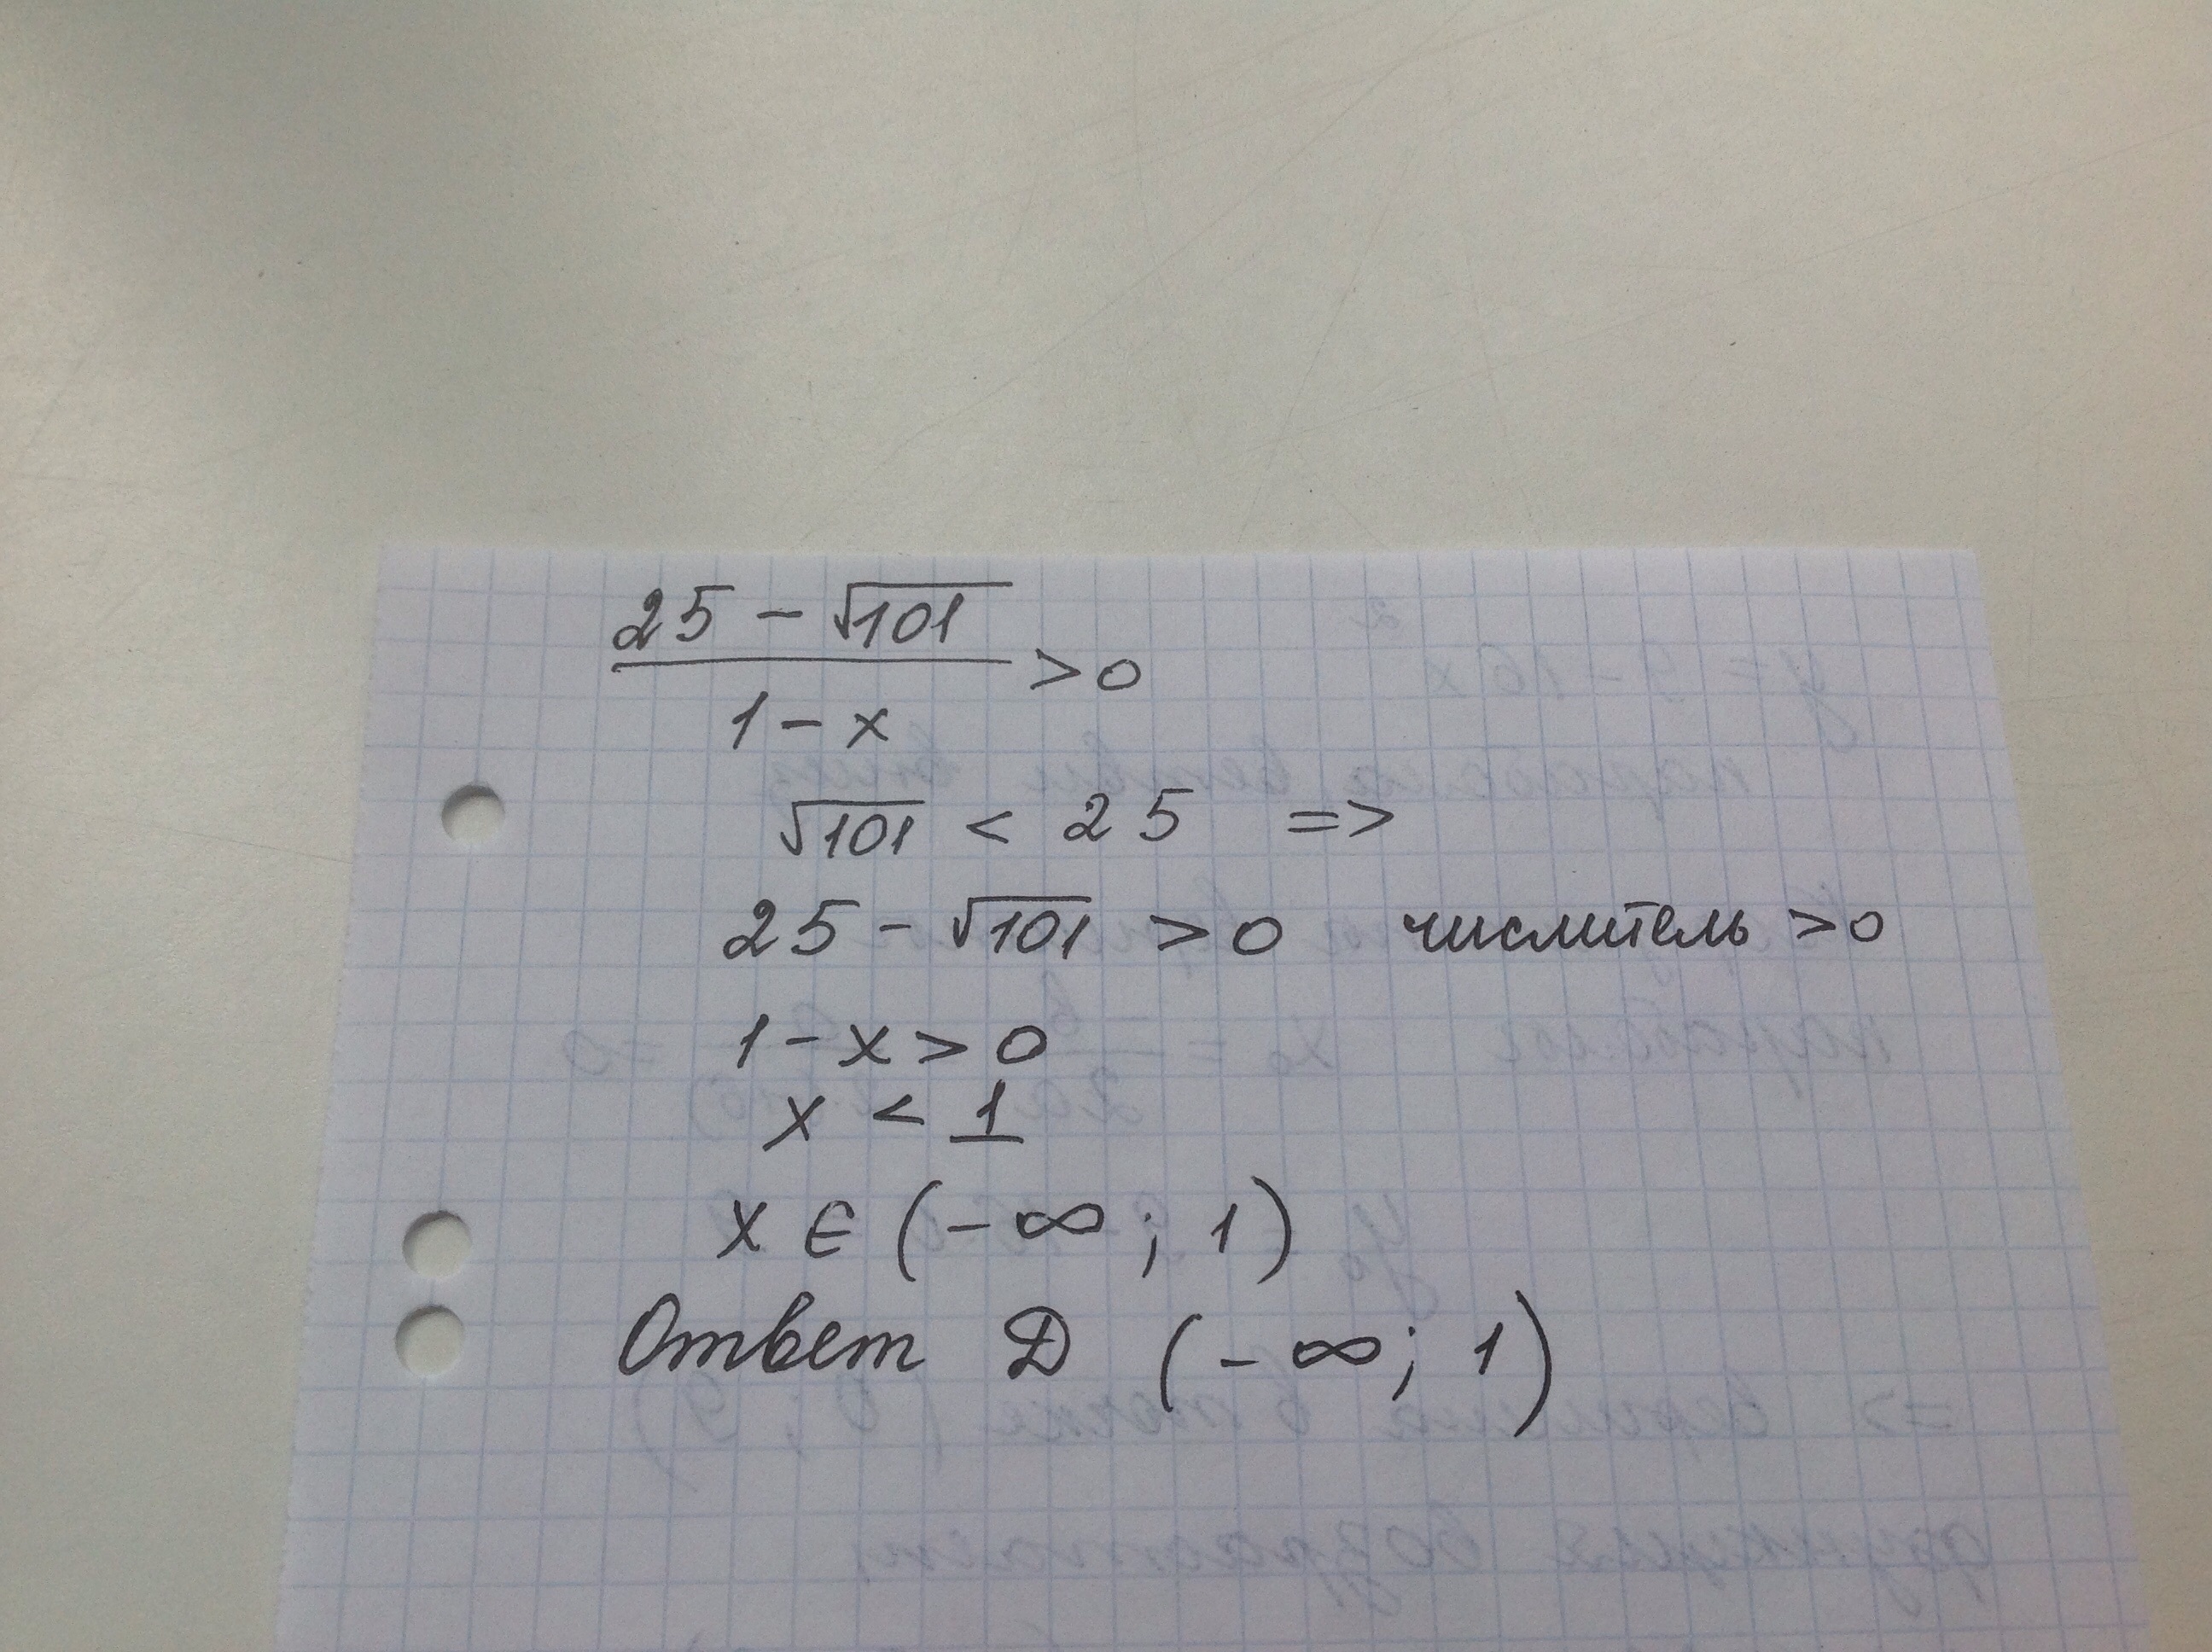 25 - √101
――――― > 0
1 - x
√101 < 25 =>
25 - √101 > 0 числитель > 0
1 - x > 0
x < 1
x ∈ (-∞; 1)
Ответ D (-∞; 1)